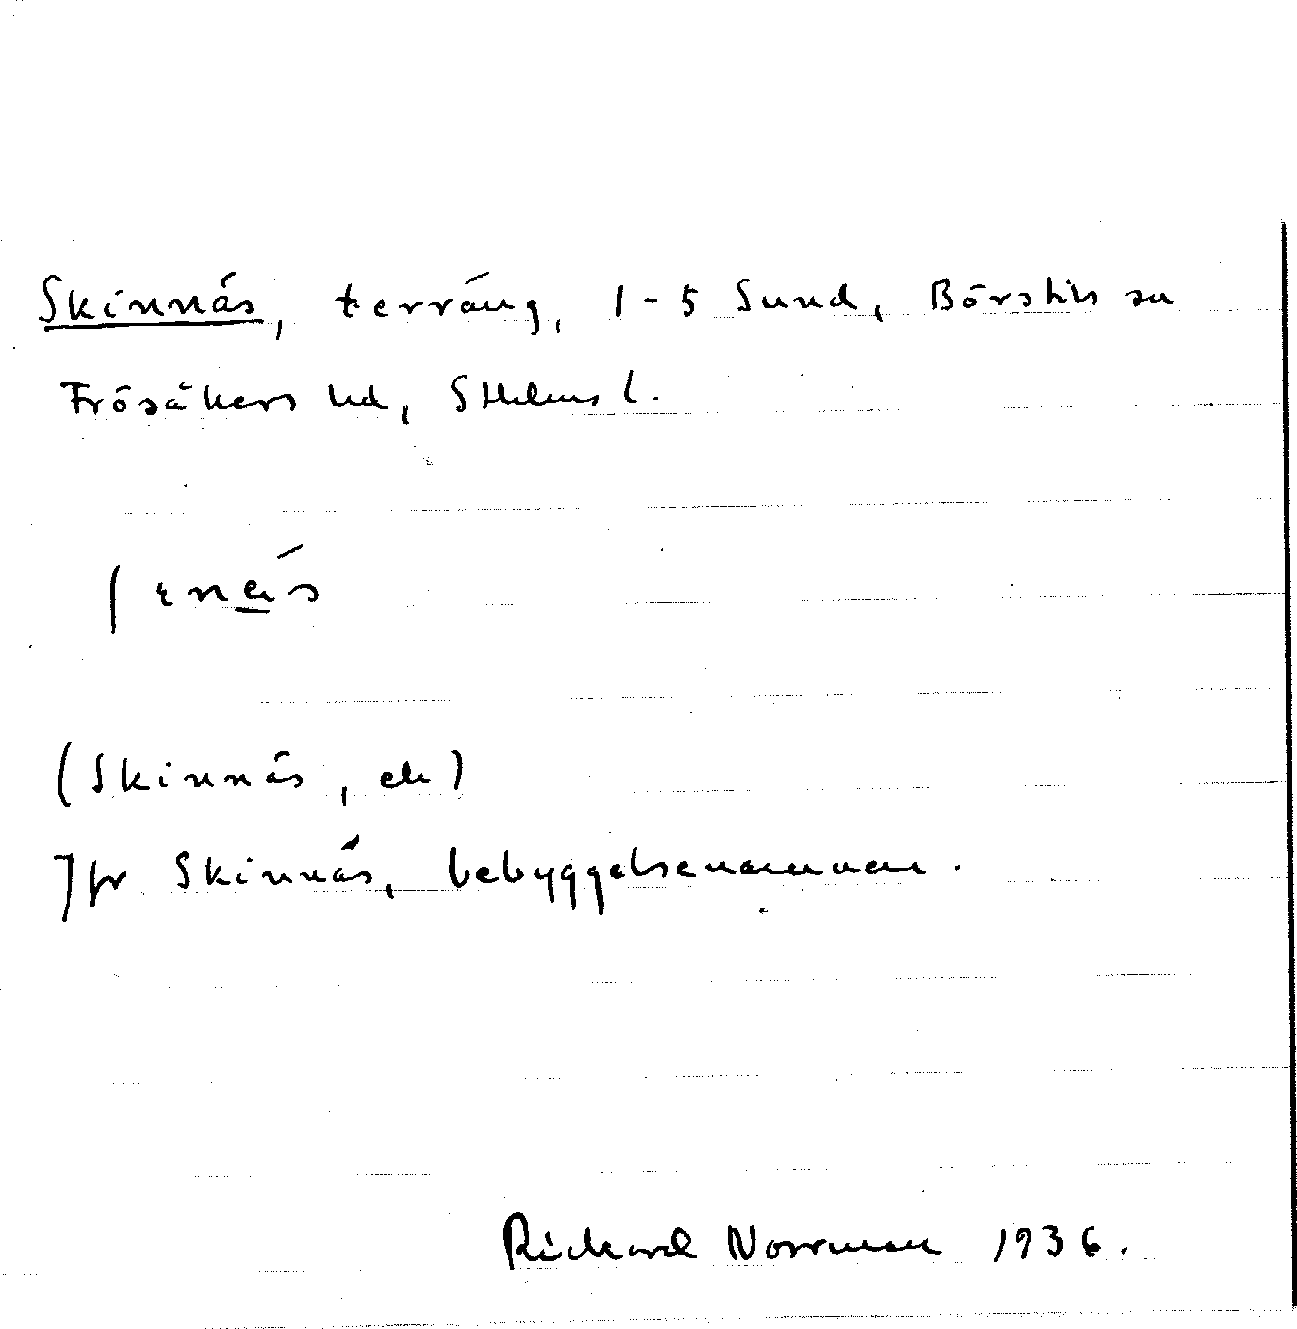 Skinnäs, terräng, 1-5 Sund, Börstils sn
Frösåkers hd, Sthlms l.
ʃɩnä́s
(Skinnäs, ek)
Jfr Skinnäs, bebyggelsenamnen.
Rickard Norrman 1936.